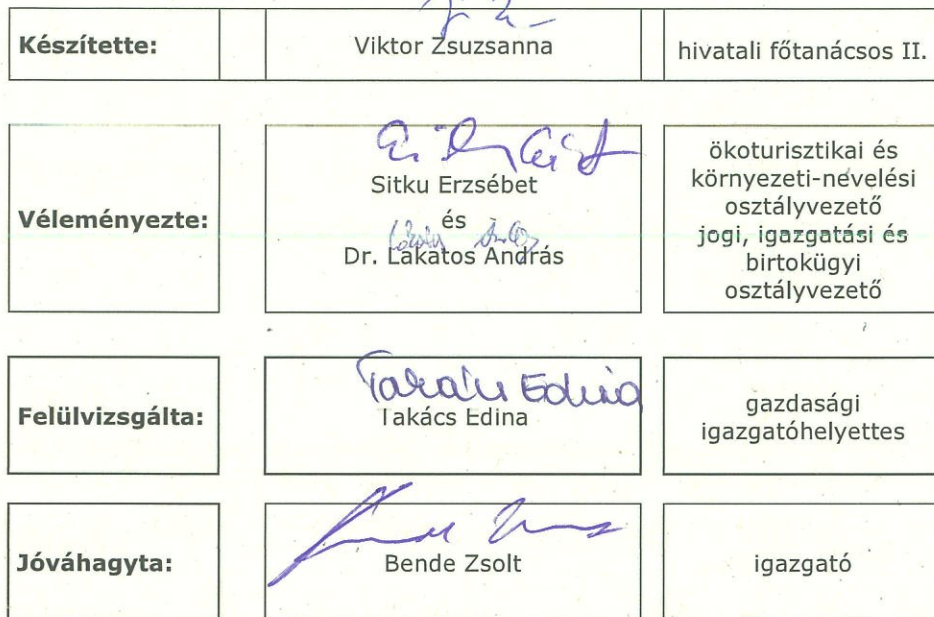 Készítette:
Viktor Zsuzsanna
hivatali főtanácsos II.
Véleményezte:
Sitku Erzsébet
és
Dr. Lakatos András
ökoturisztikai és
környezeti-nevelési
osztályvezető
jogi, igazgatási és
birtokügyi
osztályvezető
Felülvizsgálta:
Takács Edina
Takács Edina
gazdasági
igazgatóhelyettes
Jóváhagyta:
Bende Zsolt
igazgató